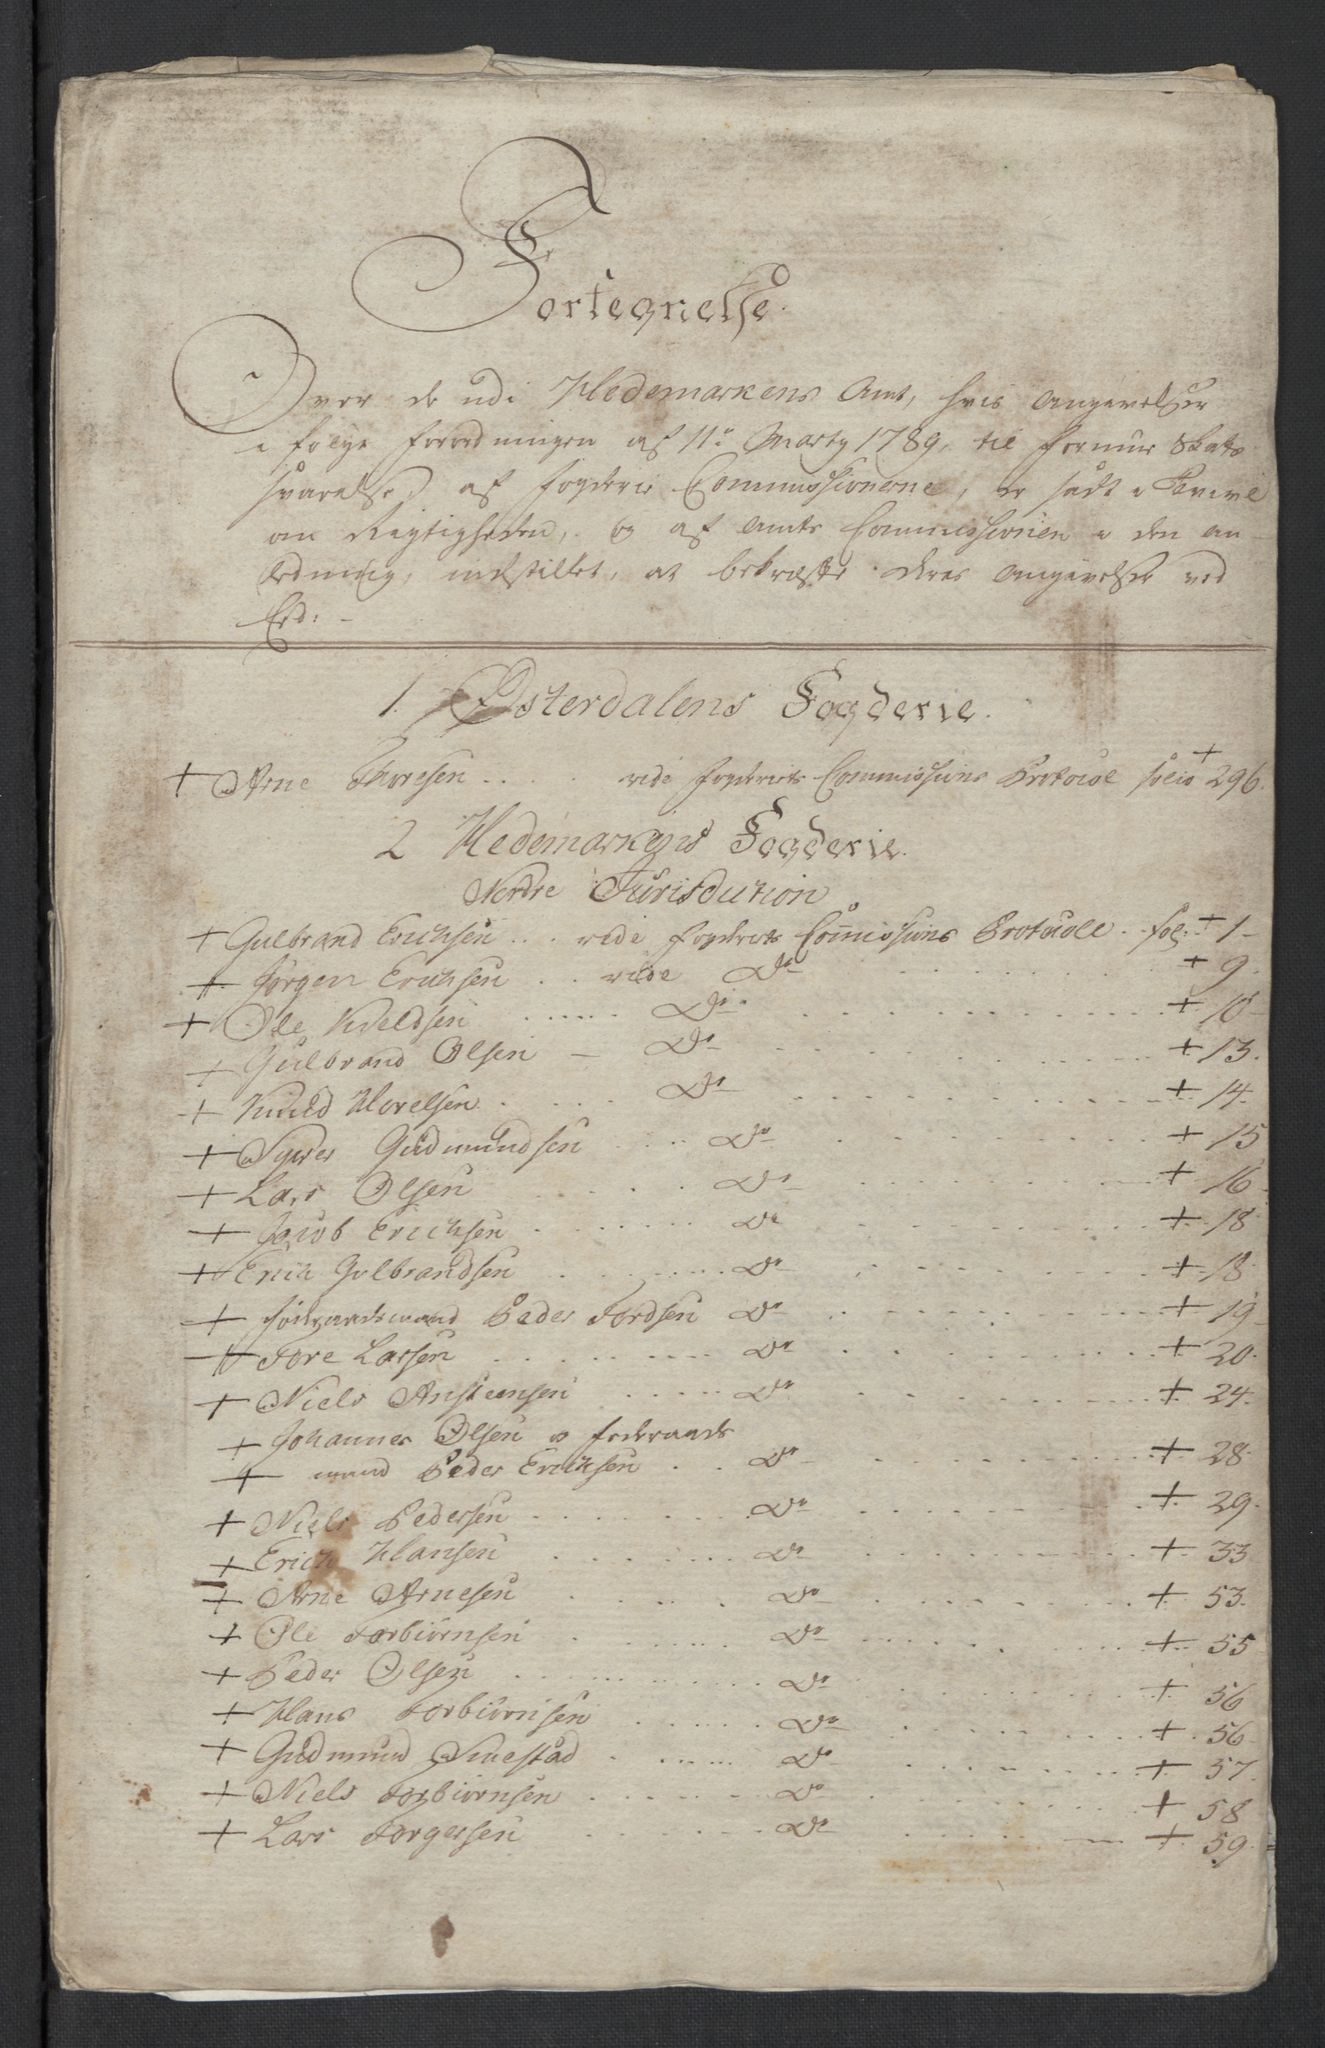 Fortegnelse.
Over de udi Hedemarkens Amt, hvis Angivelser
i følge Forordningen af 11te Marty 1789, til Formue Skats
svarelse af Fogderie Commissionerne, er sadt i Tvivl
om Rigtigheden, og af Amts Commissionen i den an-
ledning, indstillet, at bekræfte deres Angivelse ved
Eed: -
1. Østerdalens Fogderie.
+ Arne Thoresen .... vide Fogderiets Commissions Protocol folio + 296.
2 Hedemarkens Fogderie.
Nordre Jurisdiction
+ Gulbrand Erichsen ... vide Fogderiets Commissions Protocoll .. fol: + 1-
+ Jørgen Erichsen .. vide Do + 9.
+ Ole Knudsen ..... Do + 10-
+ Gulbrand Olsen - Do + 13.
+ Knud Hovelsen Do + 14.
+ Syver Gudmundsen Do + 15
+ Lars Olsen Do + 16.
+ Jacob Erichsen Do + 18
+ Erich Gulbrandsen Do + 18
+ Føderaadsmand Peder Tordsen Do + 19
+ Tore Larsen Do + 20.
+ Niels Ansteensen Do + 24.
+ Johannes Olsen og Føderaads
+ mand Peder Erichsen Do + 28
+ Niels Pedersen Do + 29.
+ Erich Hansen Do + 33
+ Arne Arnesen Do + 53.
+ Ole Torbiørnsen Do + 55
+ Peder Olsen Do + 56
+ Hans Torbiørnsen Do + 56.
+ Gudmund Do + 57.
+ Niels Torbiørnsen Do + 58
+ Lars Torgersen Do + 59.